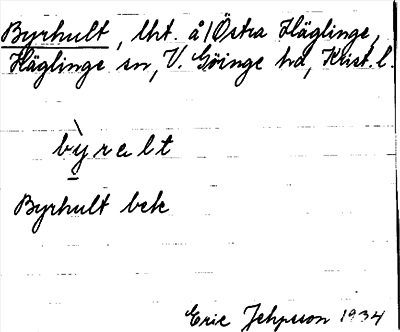 Byrhult, lht. å/Östra Häglinge,
Häglinge sn, V. Göinge hd, Krist. l.
bỳralt
Byrhult bek
Eric Jepsson 1934